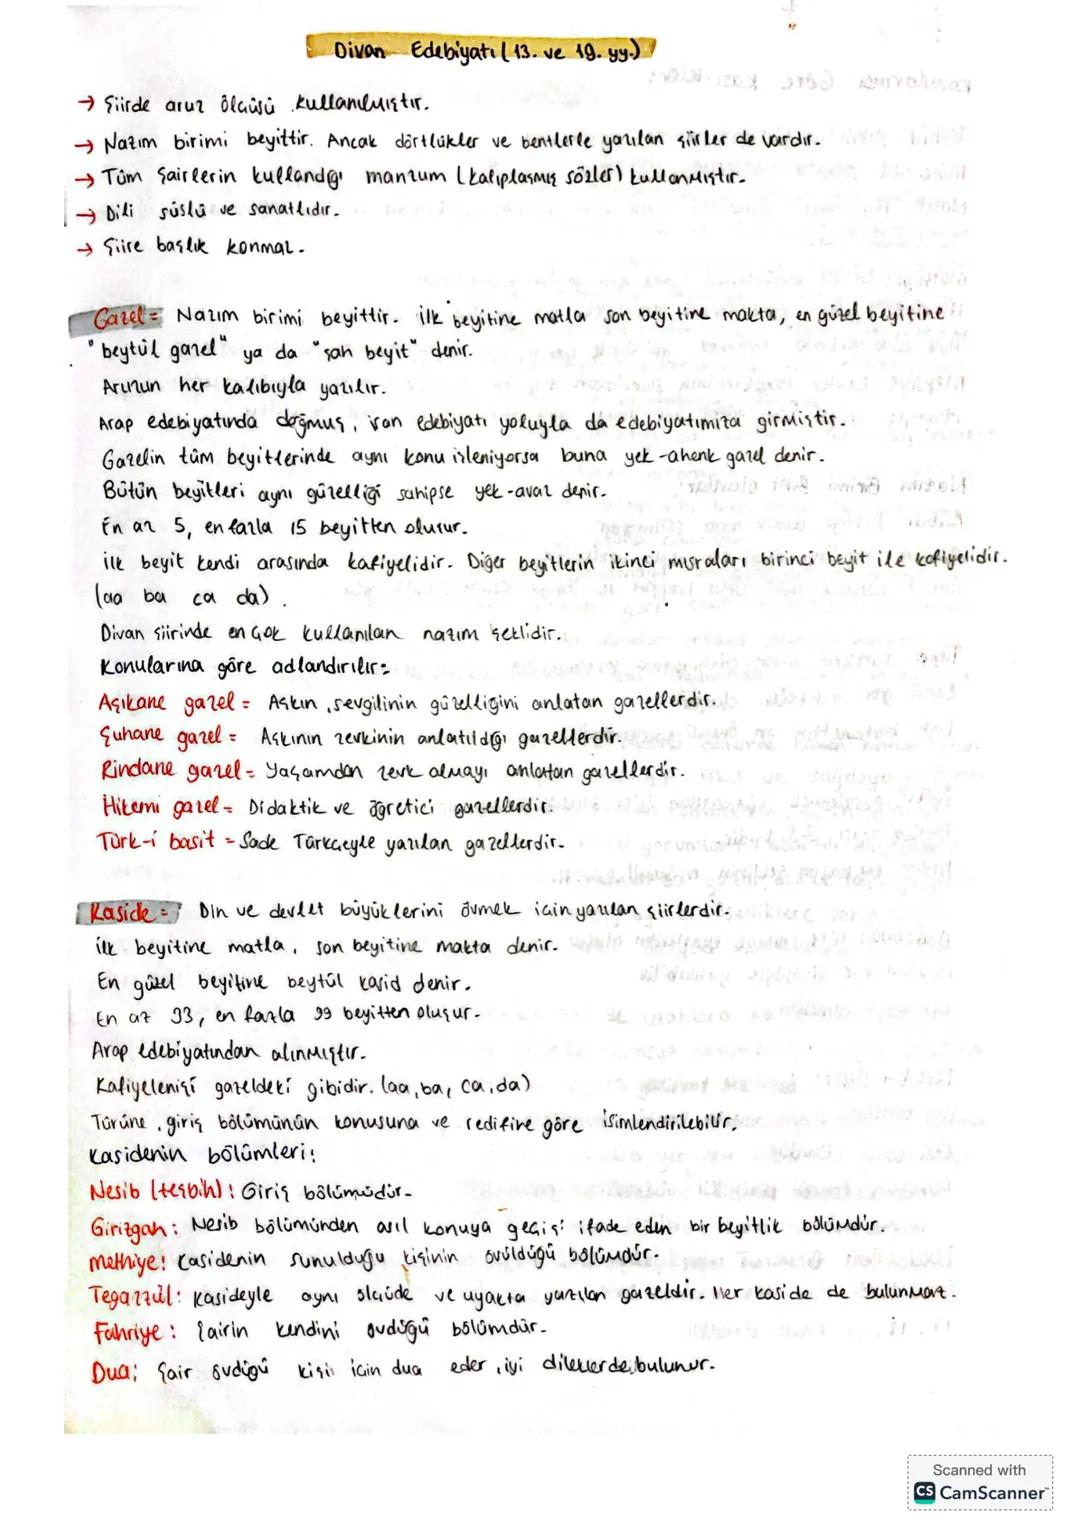 Divan Edebiyatı (13. ve 19. yy.)
→ Şiirde aruz ölçüsü kullanılmıştır.
→ Nazım birimi beyittir. Ancak dörtlükler ve bentlerle yazılan şiirler de vardır.
→ Tüm şairlerin kullandığı manzum (kalıplaşmış sözler) kullanmıştır.
→ Dili süslü ve sanatlıdır.
→ Şiire başlık konmaz.
Gazel = Nazım birimi beyittir. İlk beyitine matla son beyitine makta, en güzel beyitine
"beytül gazel" ya da "şah beyit" denir.
Aruzun her kalıbıyla yazılır.
Arap edebiyatında doğmuş, iran edebiyatı yoluyla da edebiyatımıza girmiştir.
Gazelin tüm beyitlerinde aynı konu işleniyorsa buna yek-ahenk gazel denir.
Bütün beyitleri aynı güzelliği sahipse yek-avaz denir.
En az 5, en fazla 15 beyitten oluşur.
İlk beyit kendi arasında kafiyelidir. Diğer beyitlerin ikinci mısraları birinci beyit ile kafiyelidir.
(aa ba ca da).
Divan şiirinde en çok kullanılan nazım şeklidir.
Konularına göre adlandırılır:
Aşıkane gazel = Aşkın, sevgilinin güzelliğini anlatan gazellerdir.
Şuhane gazel = Aşkının zevkinin anlatıldığı gazellerdir.
Rindane gazel = Yaşamdan zevk almayı anlatan gazellerdir.
Hikemi gazel = Didaktik ve öğretici gazellerdir.
Türk-i basit = Sade Türkçeyle yazılan gazellerdir.
Kaside = Din ve devlet büyüklerini övmek için yazılan şiirlerdir.
İlk beyitine matla, son beyitine makta denir.
En güzel beyitine beytül kasid denir.
En az 33, en fazla 99 beyitten oluşur.
Arap edebiyatından alınmıştır.
Kafiyelenişi gazeldeki gibidir. (aa, ba, ca, da)
Türüne, giriş bölümünün konusuna ve redifine göre isimlendirilebilir.
Kasidenin bölümleri:
Nesib (teşbih): Giriş bölümüdür.
Girizgah: Nesib bölümünden asıl konuya geçişi ifade eden bir beyitlik bölümdür.
Methiye: Casidenin sunulduğu kişinin övüldüğü bölümdür.
Tegazzül: Kasideyle aynı ölçüde ve uyakta yazılan gazeldir. Her kaside de bulunmaz.
Fahriye: Şairin kendini övdüğü bölümdür.
Dua: Şair övdüğü kişi için dua eder, iyi dileklerde bulunur.
Scanned with
CS CamScanner